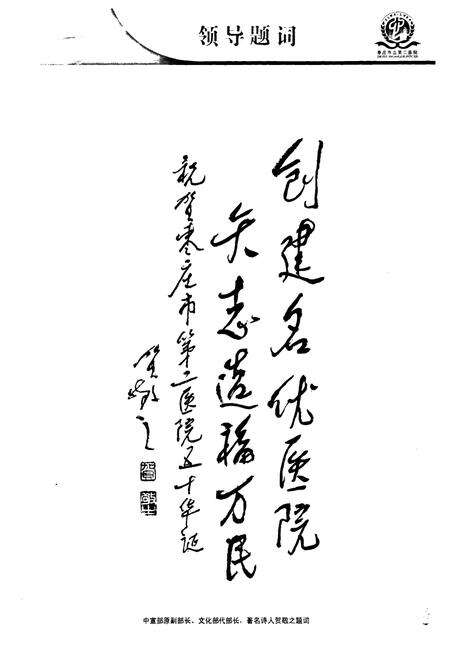 领导题词
枣庄市立第二医院
创建名优医院
矢志造福万民
祝贺枣庄市第二医院五十华诞
贺敬之
中宣部原副部长、文化部代部长、著名诗人贺敬之题词